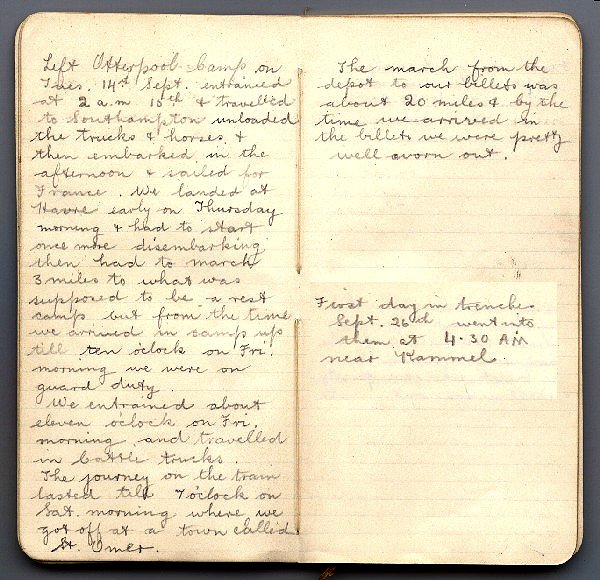 Left Otterpool Camp on
Tues. 14th Sept. entrained
at 2 a.m 15th & travelled
to Southampton unloaded
the trucks & horses. &
then embarked in the
afternoon & sailed for
France. We landed at
Havre early on Thursday
morning & had to start
once more disembarking
then had to march
3 miles to what was
supposed to be a rest
camp but from the time
we arrived in camp up
till ten oclock on Fri.
morning we were on
guard duty.
We entrained about
eleven oclock on Fri.
morning and travelled
in cattle trucks.
The journey on the train
lasted till 7 oclock on
Sat. morning where we
got off at a town called
St. Omer.
The march from the
depot to our billets was
about 20 miles & by the
time we arrived in
the billets we were pretty
well worn out.
First day in trenches
Sept. 26th went into
them at 4.30 AM
near Kammel.